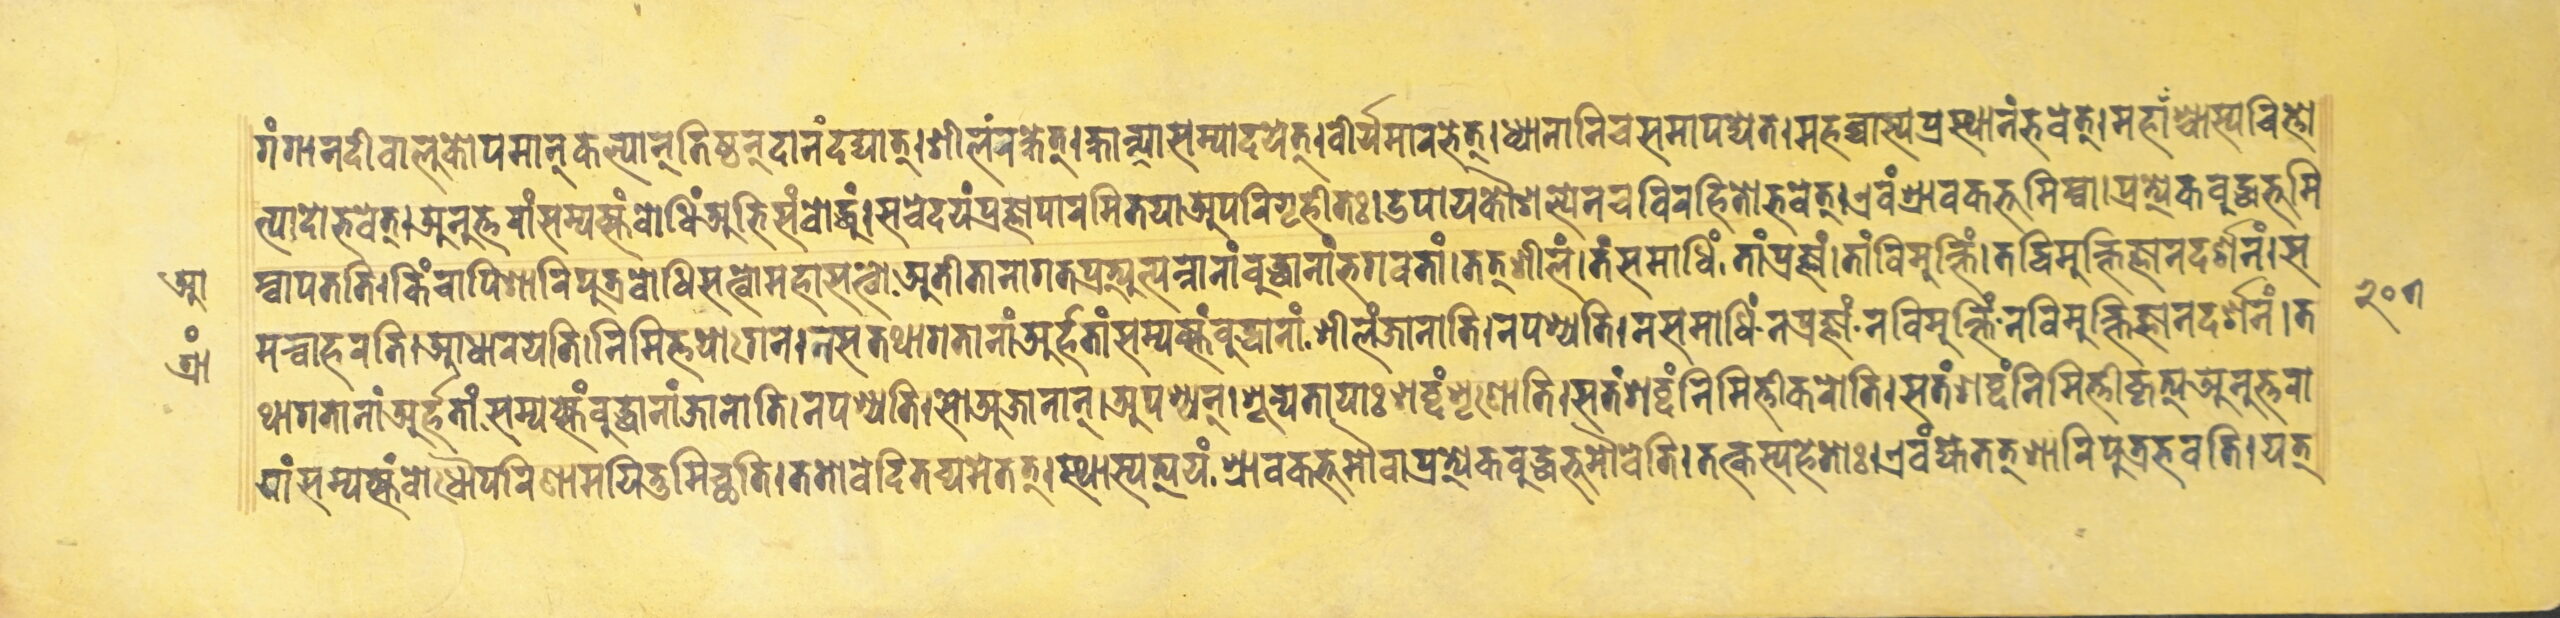 गंगानदीवालुकोपमान्कल्पान्तिष्ठन्दानंदद्यात्।शीलंरक्षेत्।क्षान्त्यासंम्पादयेत्।वीर्यमारभेत्।ध्यानानिचसमापद्येत।महच्चास्यप्रस्थानंभवेत्।महांश्चास्यचित्तो
त्पादोभवेत्।अनुत्तरांसम्यक्संबोधिंअभिसंबोद्धुं।सचेदयंप्रज्ञापारमितया।अपरिगृहीतः।उपायकौशल्येनचविरहितोभवेत्।एवंश्रावकभूमिम्वा।प्रत्येकबुद्धभूमि
म्वापतति।किंचापिशारिपुत्रबोधिसत्त्वोमहासत्त्वो।अतीतानागतप्रत्युत्पन्नानांबुद्धानांभगवतां।तत्शीलं।तंसमाधिं।तांप्रज्ञां।तांविमुक्तिं।तद्विमुक्तिज्ञानदर्शनं।स
मन्वाहरति।आधारयति।निमित्तयोगेन।नसतथागतानांअर्हतांसम्यक्संबुद्धानां।शीलंजानाति।नपश्यति।नसमाधिं।नप्रज्ञां।नविमुक्तिं।नविमुक्तिज्ञानदर्शनं।त
थागतानांअर्हतां।सम्यक्संबुद्धानांजानाति।नपश्यति।सोअजानान्।अपश्यन्।शून्यतायाःशब्दंशृणोति।सतंशब्दंनिमित्तीकरोति।सतंशब्दंनिमित्तीकृत्यअनुत्तरा
यांसम्यक्संबोधौपरिणामयितुमिच्छति।ततोवेदितव्यमेतत्।स्थास्यत्ययं।श्रावकभूमौवाप्रत्येकबुद्धभूमौवेति।तत्कस्यहेतोः।एवंह्येतत्शारिपुत्रभवति।यत्
आ
श्रां
२०१